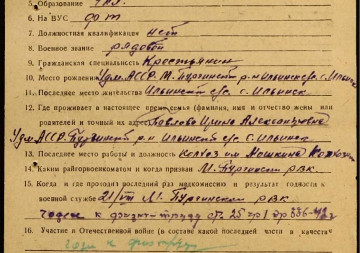 5. Образование
6. На ВУС
7. Должностная квалификация нет
8. Военное звание рядовой
9. Гражданская специальность Крестьянин
10. Место рождения Удм АССР. М. Пургинский р-н Ильинский с/с. с. Ильинск
11. Последнее место жительства Ильинский с/с. с. Ильинск
12. Где проживает в настоящее время семья (фамилия, имя и отчество жены или
родителей и точный их адрес Павлова Ирина Александровна
Удм АССР. Пургинский р-н Ильинский с/с с. Ильинск
13. Последнее место работы и должность Колхоз им Мошкина Колхозник
14. Каким райгорвоенкоматом и когда призван М. Пургинским РВК.
15. Когда и где проходил последний раз медкомиссию и результат годности к
военской службе 21/VII М. Пургинским РВК.
годен к физич труду ст. 25 гр I пр 336-42 г
16. Участие в Отечественной войне (в составе какой последней части и в качестве